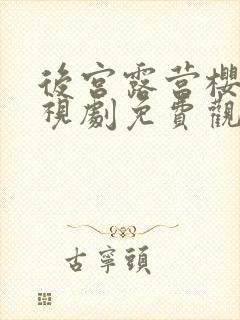 後宮露营櫻
視劇免費觀
古寧頭